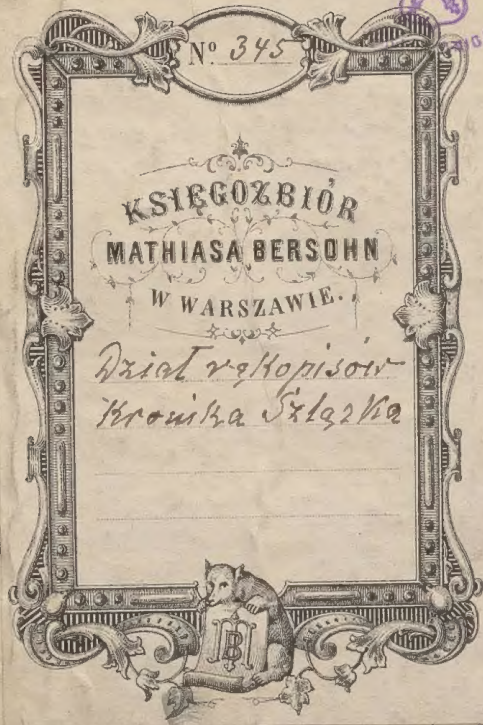 Nº 345
KSIĘGOZBIÓR
MATHIASA BERSOHN
W WARSZAWIE.
Dział rękopisów
Kronika Szlązka